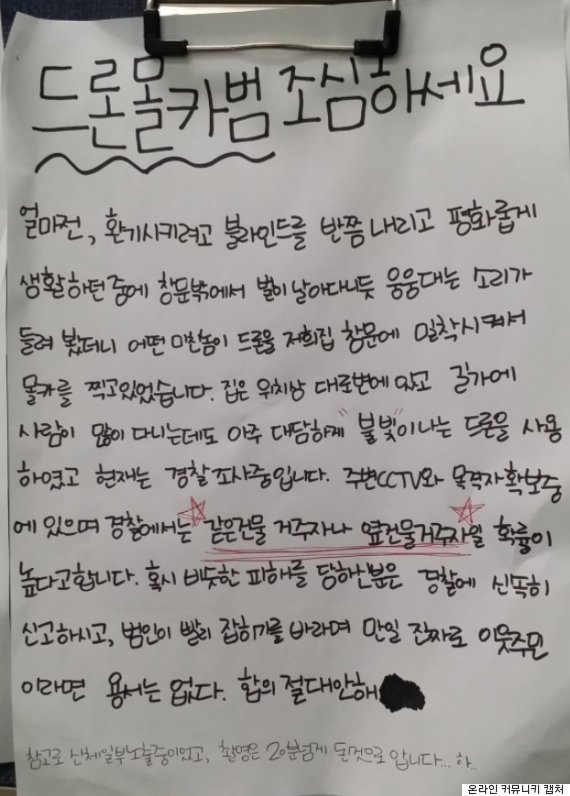 드론몰카범 조심하세요
얼마전, 환기시키려고 블라인드를 반쯤 내리고 평화롭게
생활하던 중에 창문밖에서 벌이 날아다니듯 웅웅대는 소리가
들려 봤더니 어떤 미친놈이 드론을 저희집 창문에 밀착시켜서
몰카를 찍고있었습니다. 집은 위치상 대로변에 있고 길가에
사람이 많이 다니는데도 아주 대담하게 "불빛"이 나는 드론을 사용
하였고 현재는 경찰조사중입니다. 주변CCTV와 목격자확보중
에 있으며 경찰에서는 같은건물 거주자나 옆건물거주자일 확률이
높다고합니다. 혹시 비뜻한 피해를 당하신분은 경찰에 신뜩히
신고하시고, 범인이 빨리 잡히기를 바라며 만일 진짜로 이웃주민
이라면 용서는 없다. 합의 절대안해
참고로 신체일부노출중이었고, 촬영은 20분넘게 된것으로 압니다... 하..
온라인 커뮤니키 캡처